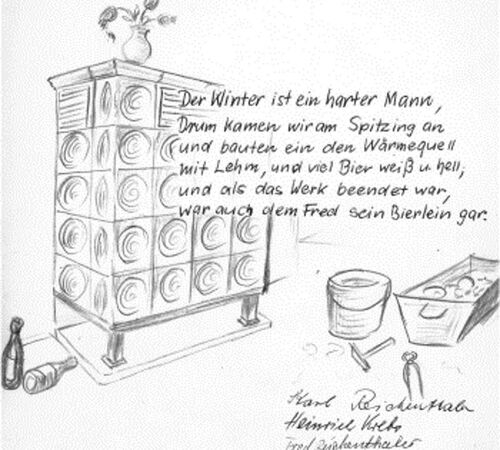 Der Winter ist ein harter Mann,
Drum kamen wir am Spitzing an
und bauten ein den Wärmequell
mit Lehm, und viel Bier weiß u. hell;
und als das Werk beendet war,
war auch dem Fred sein Bierlein gar.
Karl Reichenthaler
Heinrich Krebs
Fred Reichenthaler